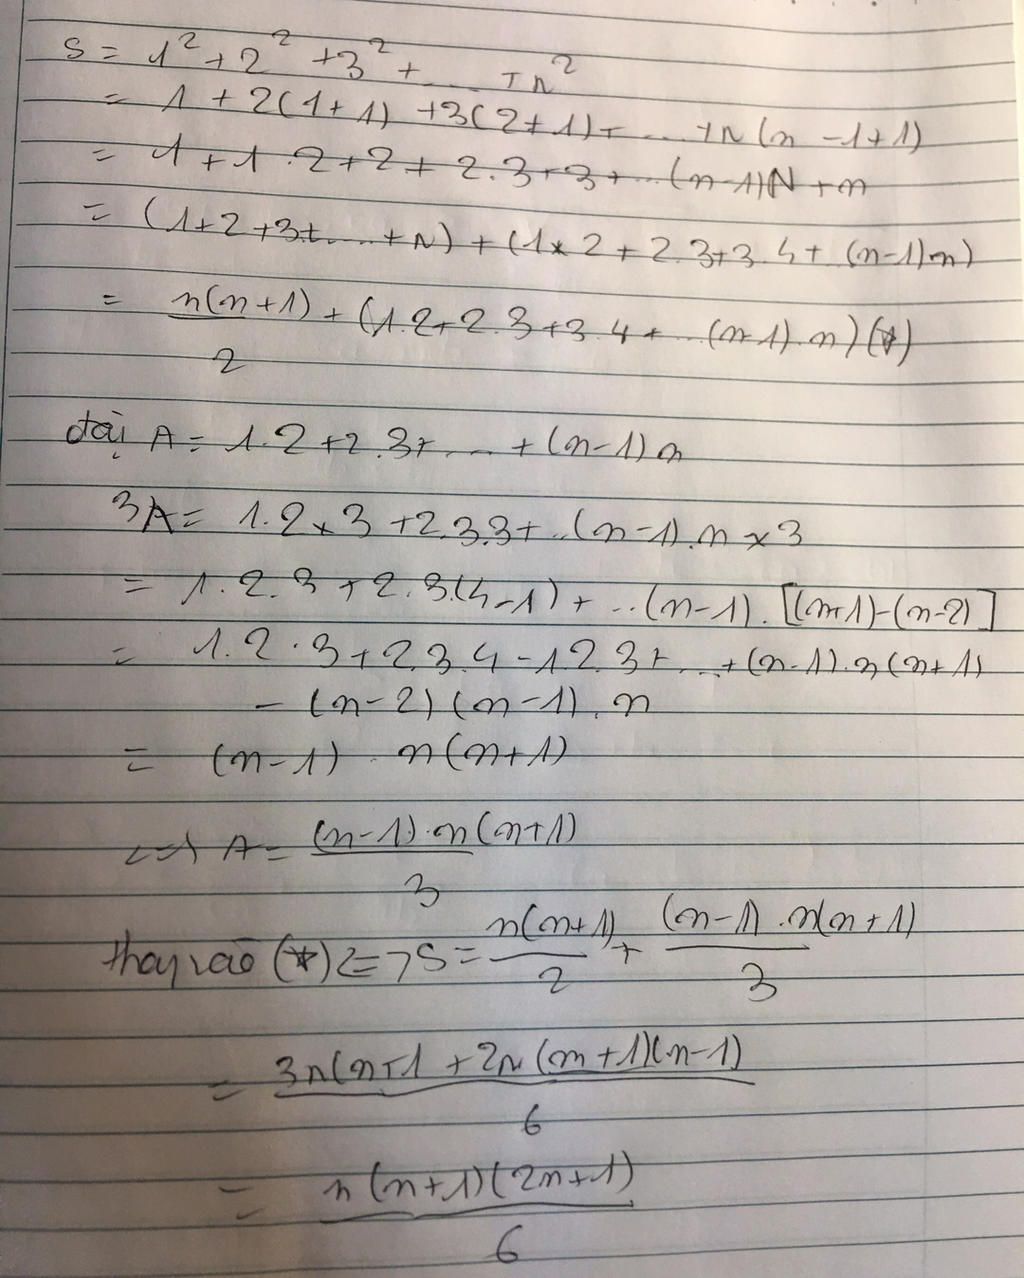 S = 1² + 2² + 3² + .... + n²
= 1 + 2(1+1) + 3(2+1) + ... + n(n-1+1)
= 1 + 1.2 + 2 + 2.3 + 3 + ... (n-1)N + n
= (1+2+3+.... + N) + (1×2 + 2.3 + 3.4 + (n-1)n)
= n(n+1)/2 + (1.2 + 2.3 + 3.4 + ... (n-1).n) (*)
đặt A = 1.2 + 2.3 + .... + (n-1)n
3A = 1.2×3 + 2.3.3 + ..(n-1).n×3
= 1.2.3 + 2.3.(4-1) + ..(n-1).[(n+1)-(n-2)]
= 1.2.3 + 2.3.4 - 1.2.3 + ... + (n-1).n(n+1)
- (n-2)(n-1).n
= (n-1) . n(n+1)
<=> A = (n-1).n(n+1)/3
thay vào (*) <=> S = n(n+1)/2 + (n-1).n(n+1)/3
= 3n(n+1 + 2n(n+1)(n-1)/6
= n(n+1)(2n+1)/6